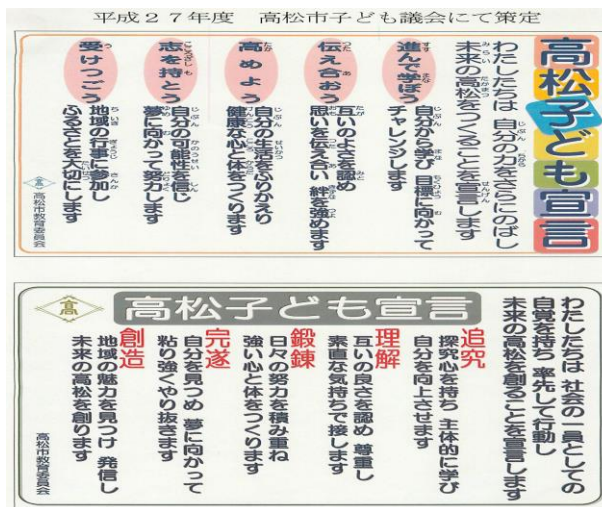 平成27年度 高松市子ども議会にて策定
高松子ども宣言
わたしたちは 自分の力をさらにのばし
未来の高松をつくることを宣言します
進んで学ぼう
自分から学び 目標に向かって
チャレンジします
伝え合おう
互いのよさを認め
思いを伝え合い 絆を強めます
高めよう
自分の生活をふりかえり
健康な心と体をつくります
志を持とう
自分の可能性を信じ
夢に向かって努力します
受けつごう
地域の行事に参加し
ふるさとを大切にします
高
高松市教育委員会
高松子ども宣言
わたしたちは 社会の一員としての
自覚を持ち 率先して行動し
未来の高松を創ることを宣言します
追究
探究心を持ち 主体的に学び
自分を向上させます
理解
互いの良さを認め 尊重し
素直な気持ちで接します
鍛錬
日々の努力を積み重ね
強い心と体をつくります
完遂
自分を見つめ 夢に向かって
粘り強くやり抜きます
創造
地域の魅力を見つけ 発信し
未来の高松を創ります
高
高松市教育委員会